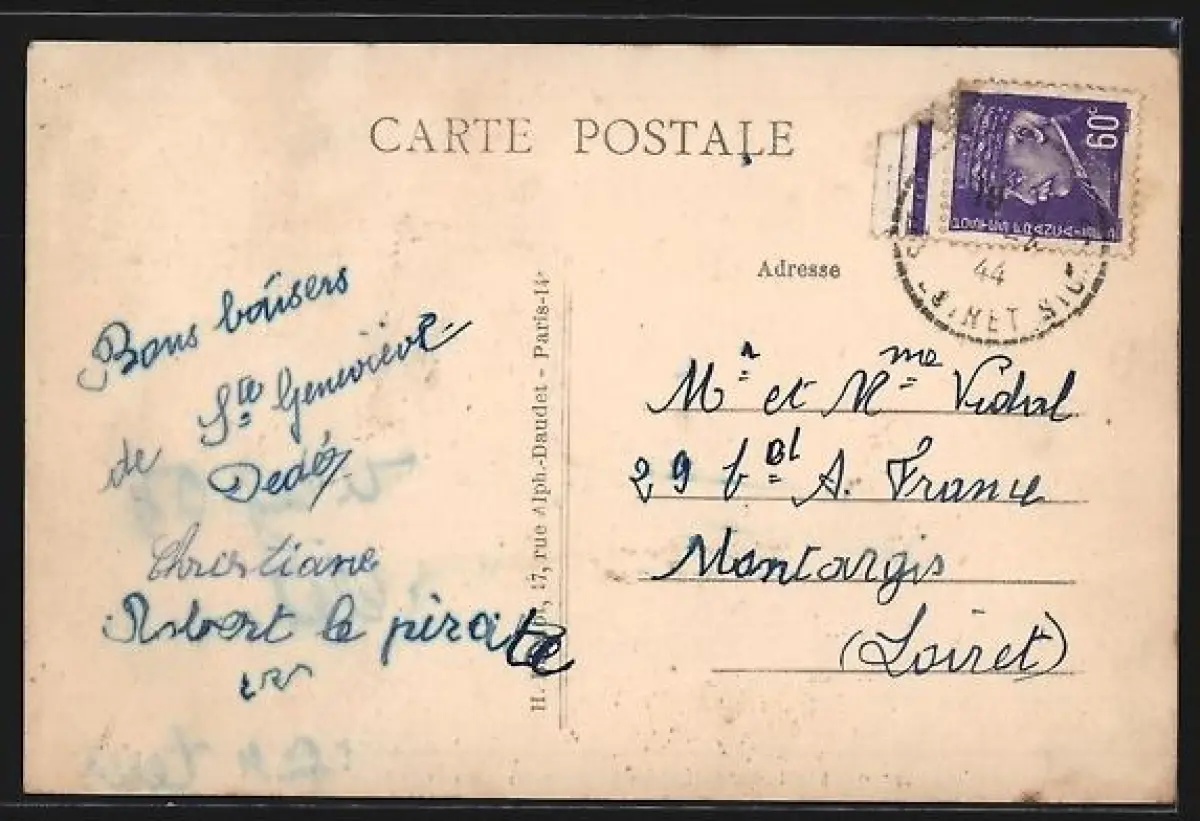 CARTE POSTALE
60c
44
Adresse
Bons baisers
de Ste Geneviève
Dedé
Christiane
Robert le pirate
Mr et Mme Vidal
29 bd A. France
Montargis
(Loiret)
17, rue Alph.-Daudet - Paris-14